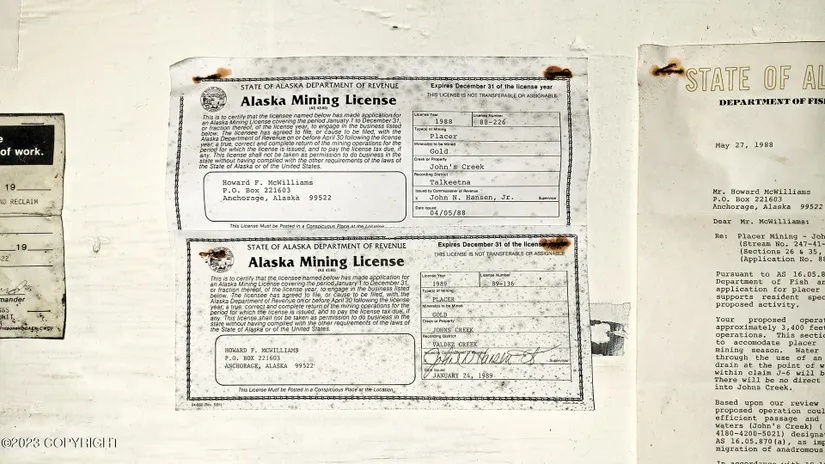 of work.
19
ND RECLAIM
19
mander
STATE OF ALASKA DEPARTMENT OF REVENUE
Alaska Mining License
(AS 43.65)
This is to certify that the licensee named below has made application for
an Alaska Mining License covering the period January 1 to December 31,
or fraction thereof, of the license year, to engage in the business listed
below. The licensee has agreed to file, or cause to be filed, with the
Alaska Department of Revenue on or before April 30 following the license
year, a true, correct and complete return of the mining operations for the
period for which the license is issued, and to pay the license tax due, if
any. This license shall not be taken as permission to do business in the
state without having complied with the other requirements of the laws of
the State of Alaska or of the United States.
Howard F. McWilliams
P.O. Box 221603
Anchorage, Alaska 99522
This License Must be Posted in a Conspicuous Place at the Location.
Expires December 31 of the license year
THIS LICENSE IS NOT TRANSFERABLE OR ASSIGNABLE.
License Year
License Number
1988
88-226
Type(s) of Mining
Placer
Mineral(s) to be Mined
Gold
Creek or Property
John's Creek
Recording District
Talkeetna
Issued by Commissioner of Revenue
x John N. Hansen, Jr.
Supervisor
Date Issued
04/05/88
STATE OF ALASKA DEPARTMENT OF REVENUE
Alaska Mining License
(AS 43.65)
This is to certify that the licensee named below has made application for
an Alaska Mining License covering the period January 1 to December 31,
or fraction thereof, of the license year, to engage in the business listed
below. The licensee has agreed to file, or cause to be filed, with the
Alaska Department of Revenue on or before April 30 following the license
year, a true, correct and complete return of the mining operations for the
period for which the license is issued, and to pay the license tax due, if
any. This license shall not be taken as permission to do business in the
state without having complied with the other requirements of the laws of
the State of Alaska or of the United States.
HOWARD F. MCWILLIAMS
P.O. BOX 221603
ANCHORAGE, ALASKA 99522
This License Must be Posted in a Conspicuous Place at the Location.
Expires December 31 of the license
THIS LICENSE IS NOT TRANSFERABLE OR ASSIGNABLE
License Year
License Number
1989
89-136
Type(s) of Mining
PLACER
Mineral(s) to be Mined
GOLD
Creek or Property
JOHNS CREEK
Recording District
VALDEZ CREEK
Supervisor
Date Issued
JANUARY 24, 1989
STATE OF AL
DEPARTMENT OF FIS
May 27, 1988
Mr. Howard McWilliams
P.O. Box 221603
Anchorage, Alaska 99522
Dear Mr. McWilliams:
Re: Placer Mining - Joh
(Stream No. 247-41-
(Sections 26 & 35,
(Application No. 88
Pursuant to AS 16.05.8
Department of Fish an
application for placer
supports resident spec
proposed activity.
Your proposed operat
approximately 3,400 feet
operations. This sectio
to accomodate placer
mining season. Water
through the use of an
drain at the point of w
within claim J-6 will b
There will be no direct
into Johns Creek.
Based upon our review
proposed operation coul
efficient passage and
waters (John's Creek) (
4180-4200-5021) designat
AS 16.05.870(a), as imp
migration of anadromous
In accordance with AS 16
©2023 COPYRIGHT